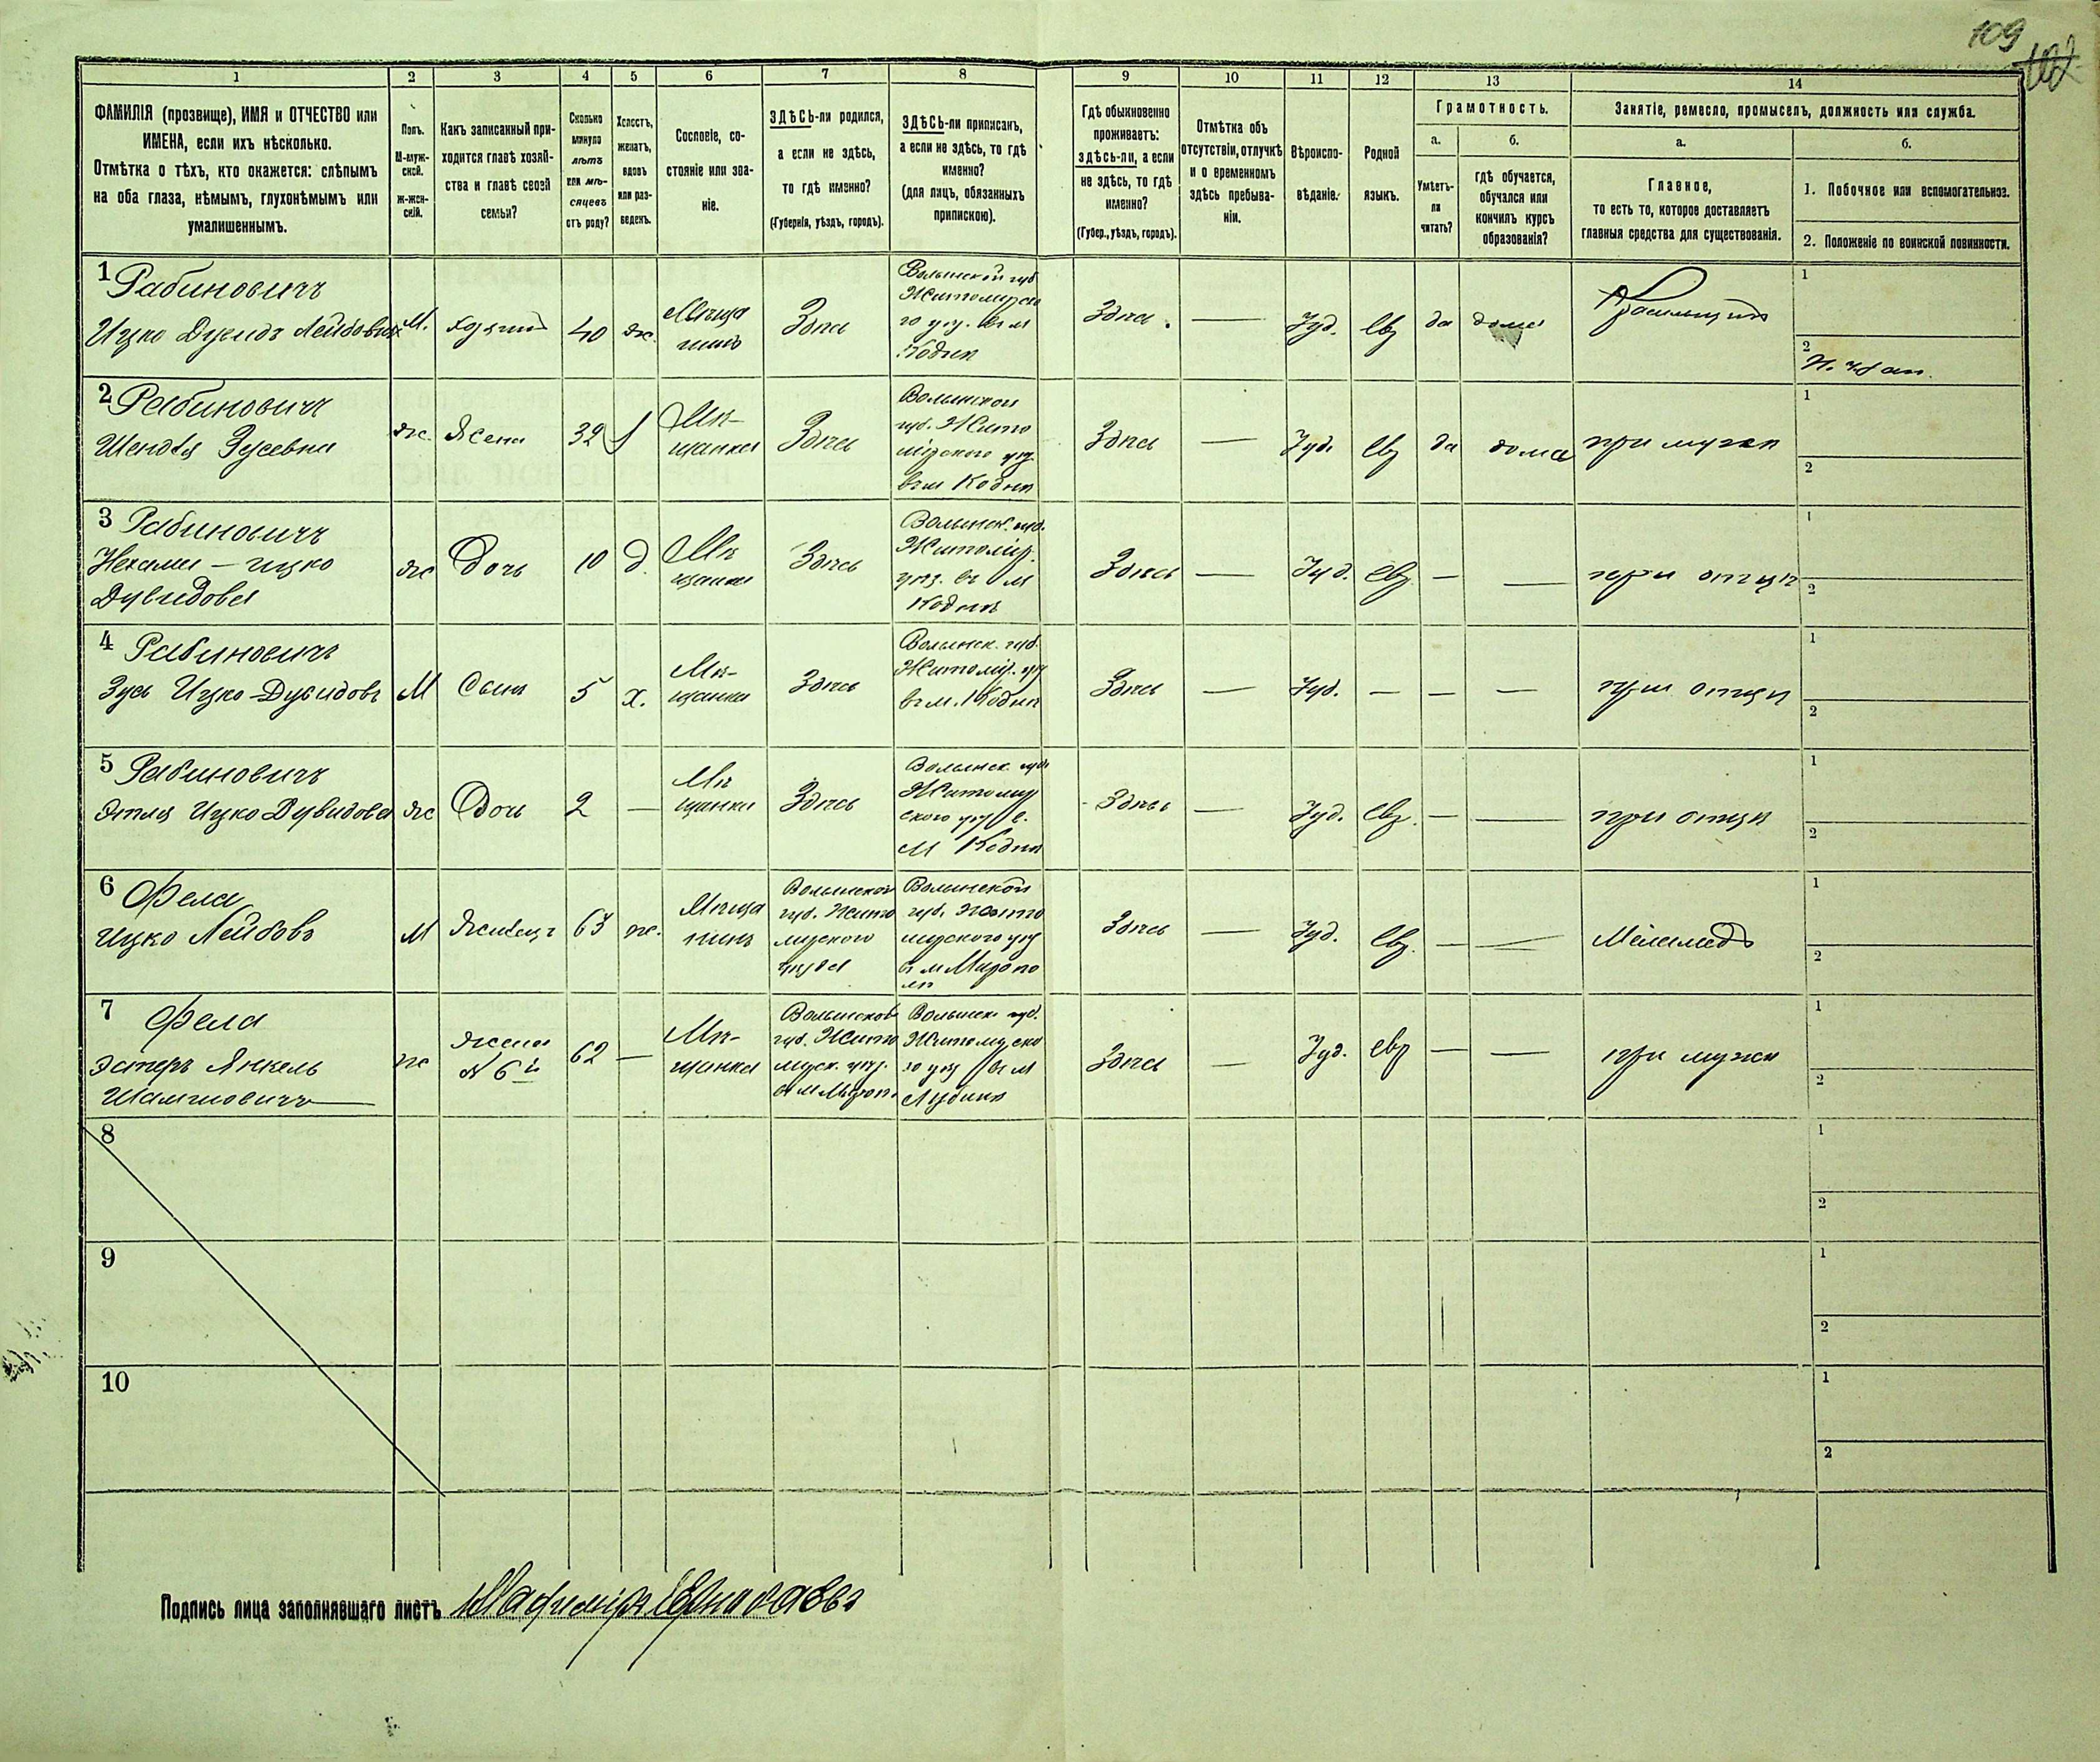 109
102
1 2 3 4 5 6 7 8 9 10 11 12 13 14
ФАМИЛІЯ (прозвище), ИМЯ и ОТЧЕСТВО или
ИМЕНА, если ихъ нѣсколько.
Отмѣтка о тѣхъ, кто окажется: слѣпымъ
на оба глаза, нѣмымъ, глухонѣмымъ или
умалишеннымъ.
Полъ.
М-муж-
ской.
ж-жен-
скій.
Какъ записанный при-
ходится главѣ хозяй-
ства и главѣ своей
семьи?
Сколько
минуло
лѣтъ
или мѣ-
сяцевъ
отъ роду?
Холостъ,
женатъ,
вдовъ
или раз-
веденъ.
Сословіе, со-
стояніе или зва-
ніе.
ЗДѢСЬ-ли родился,
а если не здѣсь,
то гдѣ именно?
(Губернія, уѣздъ, городъ).
ЗДѢСЬ-ли приписанъ,
а если не здѣсь, то гдѣ
именно?
(для лицъ, обязанныхъ
припискою).
Гдѣ обыкновенно
проживаетъ:
здѣсь-ли, а если
не здѣсь, то гдѣ
именно?
(Губер., уѣздъ, городъ).
Отмѣтка объ
отсутствіи, отлучкѣ
и о временномъ
здѣсь пребыва-
ніи.
Вѣроиспо-
вѣданіе.
Родной
языкъ.
Грамотность.
а.
Умѣетъ-
ли
читать?
б.
гдѣ обучается,
обучался или
кончилъ курсъ
образованія?
Занятіе, ремесло, промыселъ, должность или служба.
а.
Главное,
то есть то, которое доставляетъ
главныя средства для существованія.
б.
1. Побочное или вспомогательное.
2. Положеніе по воинской повинности.
1 Рабиновичъ
Ицко Дувидъ Лейбовичъ
М.
хозяинъ
40
ж.
Мѣща
нинъ
Здѣсь
Волынской губ
Житомирско
го уѣз. въ м
Кодни
Здѣсь.
—
Іуд.
Евр
да
дома
Красильщикъ
1
2
2 Рабиновичъ
Шендля Зусевна
ж.
Жена
32
Мѣ-
щанка
Здѣсь
Волынской
губ. Жито
мірского уѣз.
въ м Коднѣ
Здѣсь
—
Іуд.
Евр
да
дома
при мужѣ
1
2
3 Рабиновичъ
Нехама — ицко
Дувидова
ж
Дочь
10
д.
Мѣ
щанка
Здѣсь
Волынск. губ.
Житомір.
уѣз. въ м
Коднѣ
Здѣсь
—
Іуд.
Евр.
—
—
при отцѣ
1
2
4 Рабиновичъ
Зусь Ицко-Дувидовъ
М
Сынъ
5
х.
Мѣ-
щанка
Здѣсь
Волынск. губ.
Житомір. уѣз
въ м. Коднѣ
Здѣсь
—
Іуд.
—
—
—
при отцѣ
1
2
5 Рабиновичъ
Этля Ицко Дувидова
ж
Дочь
2
—
Мѣ
щанка
Здѣсь
Волынск. губ
Житомир
ского уѣз в.
м Коднѣ
Здѣсь
—
Іуд.
Евр.
—
—
при отцѣ
1
2
6 Фела
Ицко Лейбовъ
М
Жилецъ
63
ж.
Мѣща
нинъ
Волынской
губ. Жито
мирского
уѣзда
Волынской
губ. Жито
мирского уѣз
въ м Миропо
лѣ
Здѣсь
—
Іуд.
Евр.
—
—
Меламедъ
1
2
7 Фела
Эстеръ Янкель
ж
жена
№ 6й
62
—
Мѣ-
щанка
Волынской
губ. Жито
мирск. уѣз.
въ м Мироп.
Волынск. губ.
Житомирско
го уѣз въ м
Здѣсь
—
Іуд.
евр
—
—
при мужѣ
1
2
8
1
2
9
1
2
10
1
2
Подпись лица заполнявшаго листъ